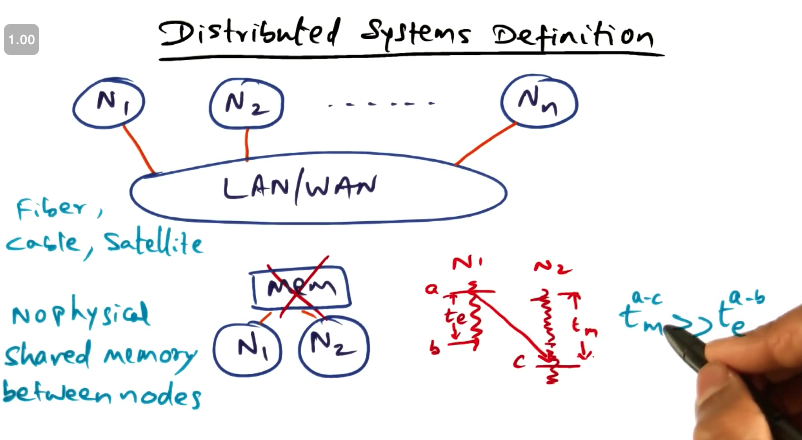 1.00
Distributed Systems Definition
N1 N2 ------ Nn
LAN/WAN
Fiber,
Cable, Satellite
mem
N1 N2
No physical
Shared memory
between nodes
N1 N2
a
te
b
tm
c
a-c a-b
tm >> te